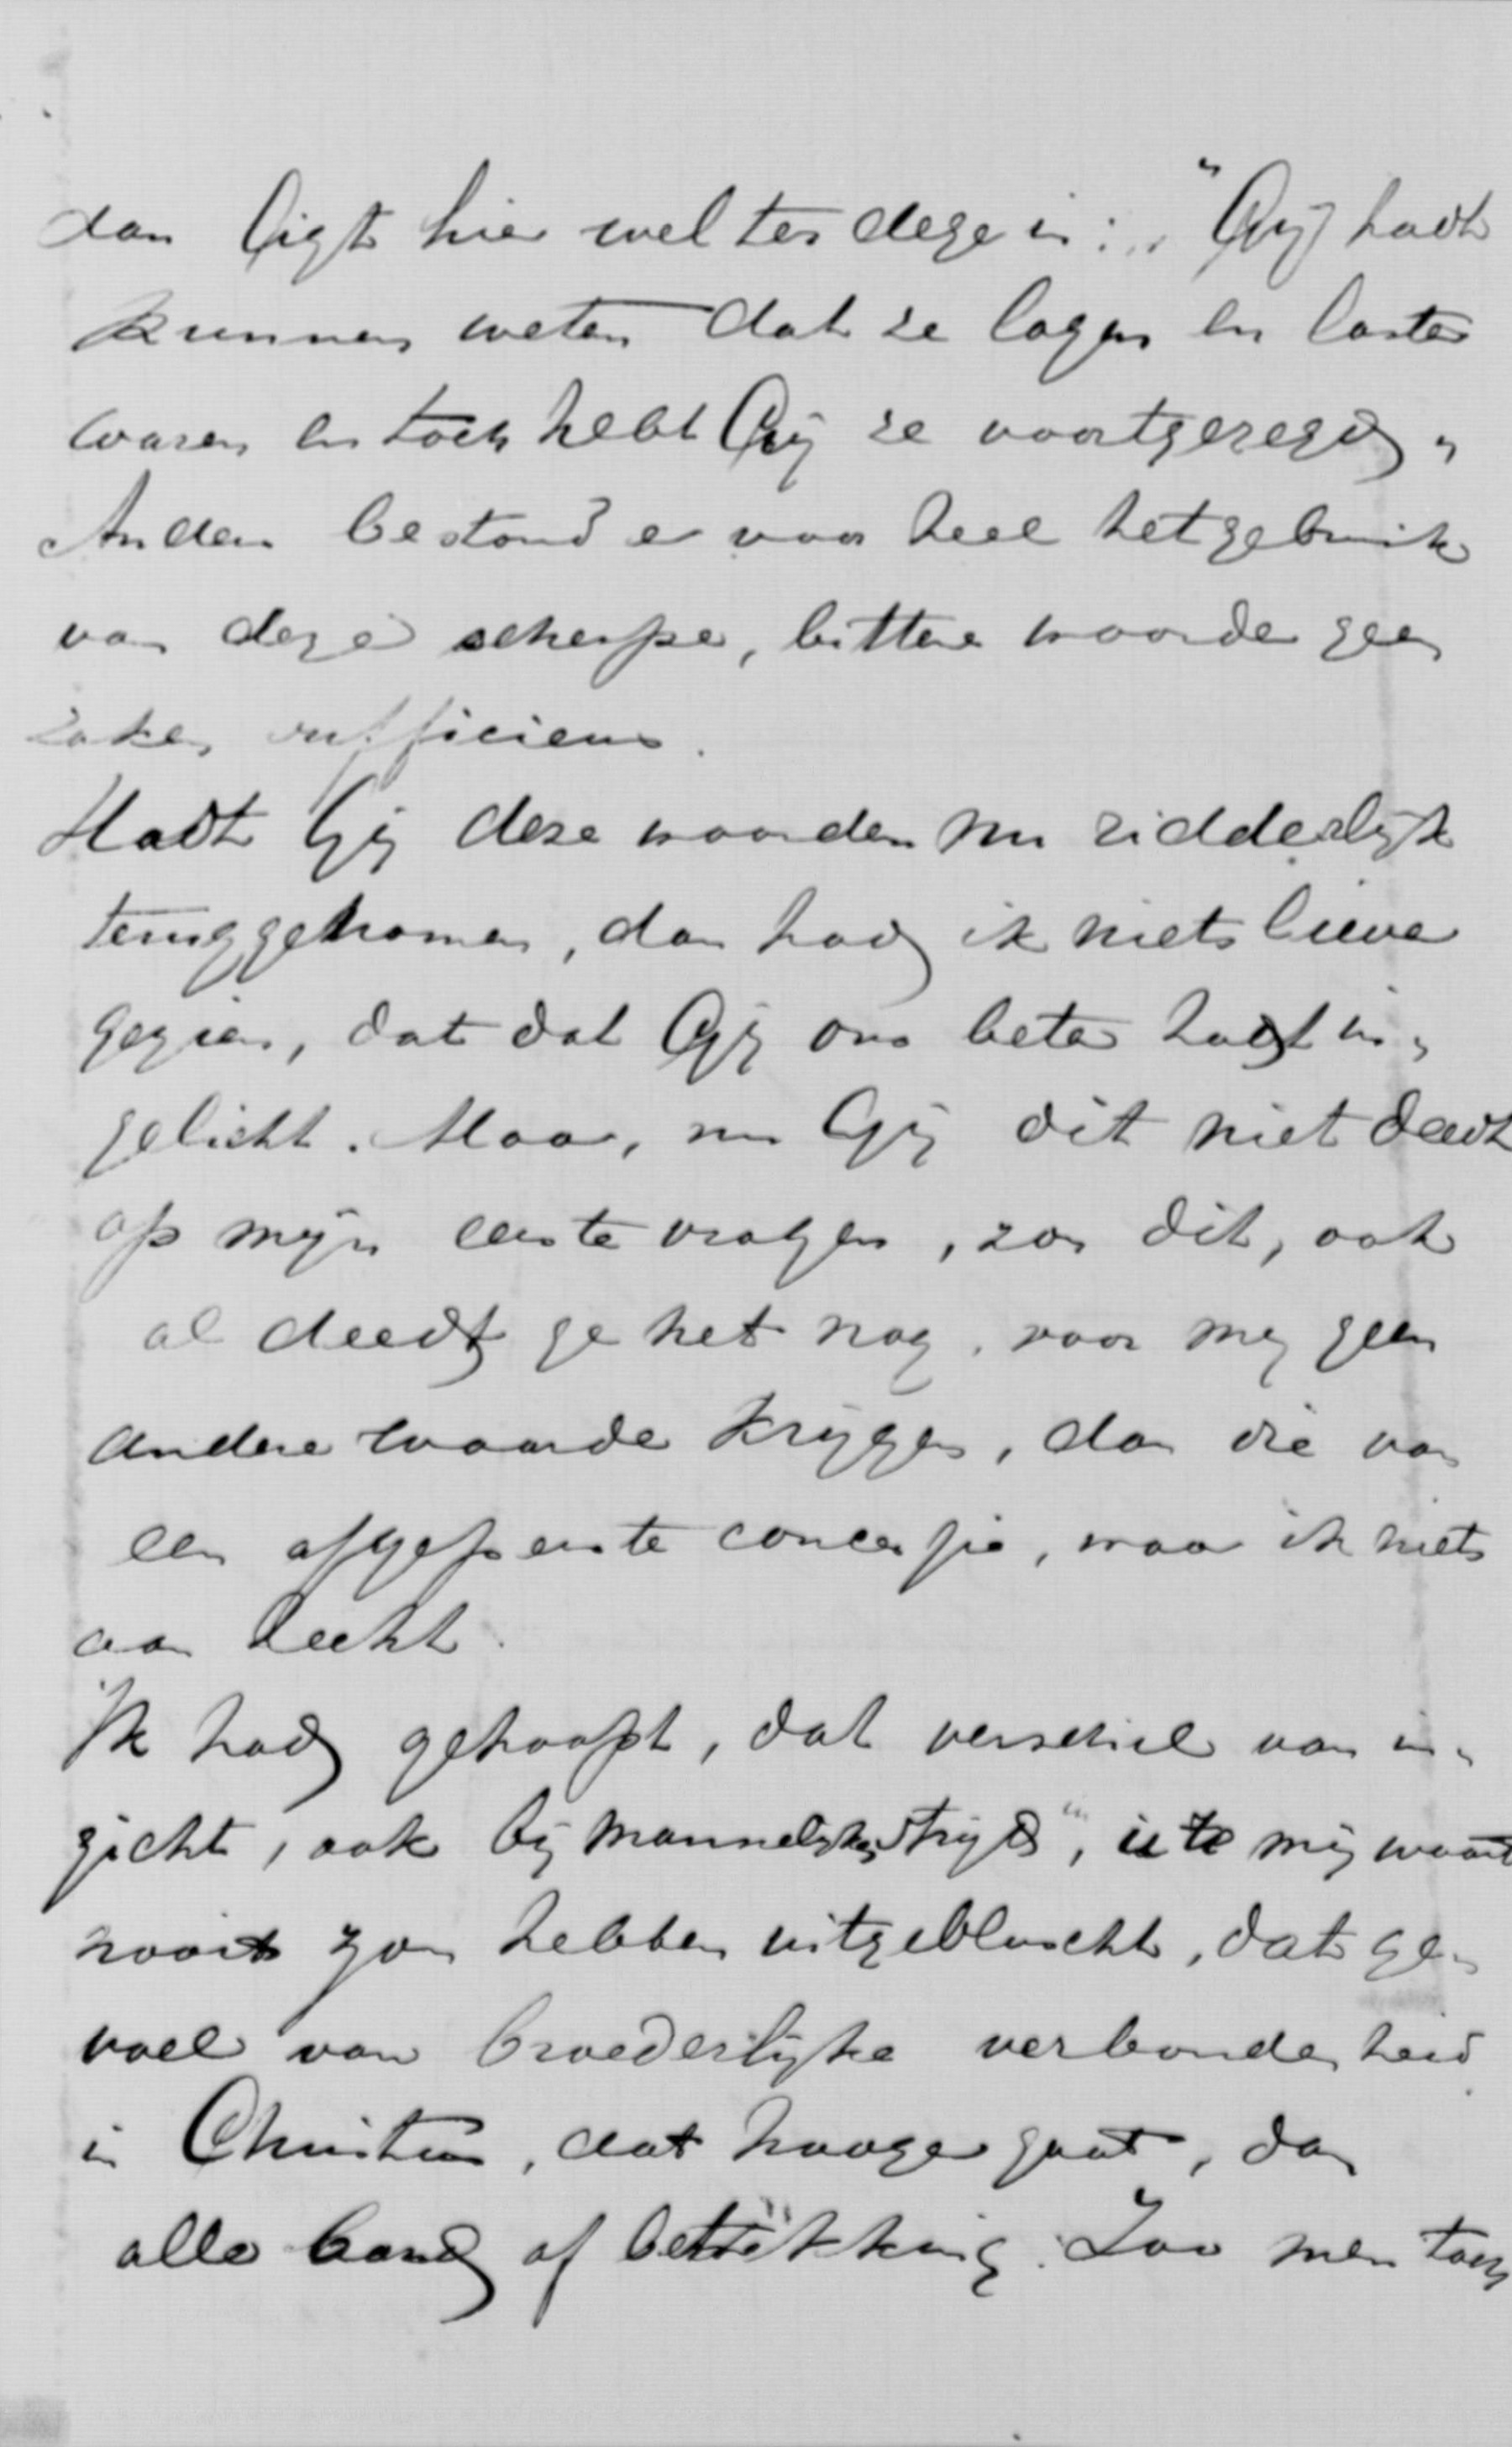 dan ligt hier wel ter dege in: "Gij hadt
kunnen weten dat ze logen en laster
waren en toch hebt Gij ze voortgezegd"
Anders bestond er voor heel het gebruik
van deze scherpe, bittere woorden geen
sufficiens.
Hadt Gij deze woorden nu ridderlijk
teruggenomen, dan had ik niets liever
gezien, dat dat Gij ons beter hadt in-
gelicht. Maar, nu Gij dit niet deedt
op mijn eerste vragen, zou dit, ook
al deedt ge het nog, voor mij geen
andere waarde krijgen, dan die van
een afgeperste concessie, waar ik niets
aan hecht.
Ik had gehoopt, dat verschil van in-
zicht, ook bij mannelijken strijd, te mijwaart
nooit zou hebben uitgebluscht, dat ge-
voel van broederlijke verbondenheid
in Christus, dat hooger gaat, dan
alle band of betrekking. Zoo men toch